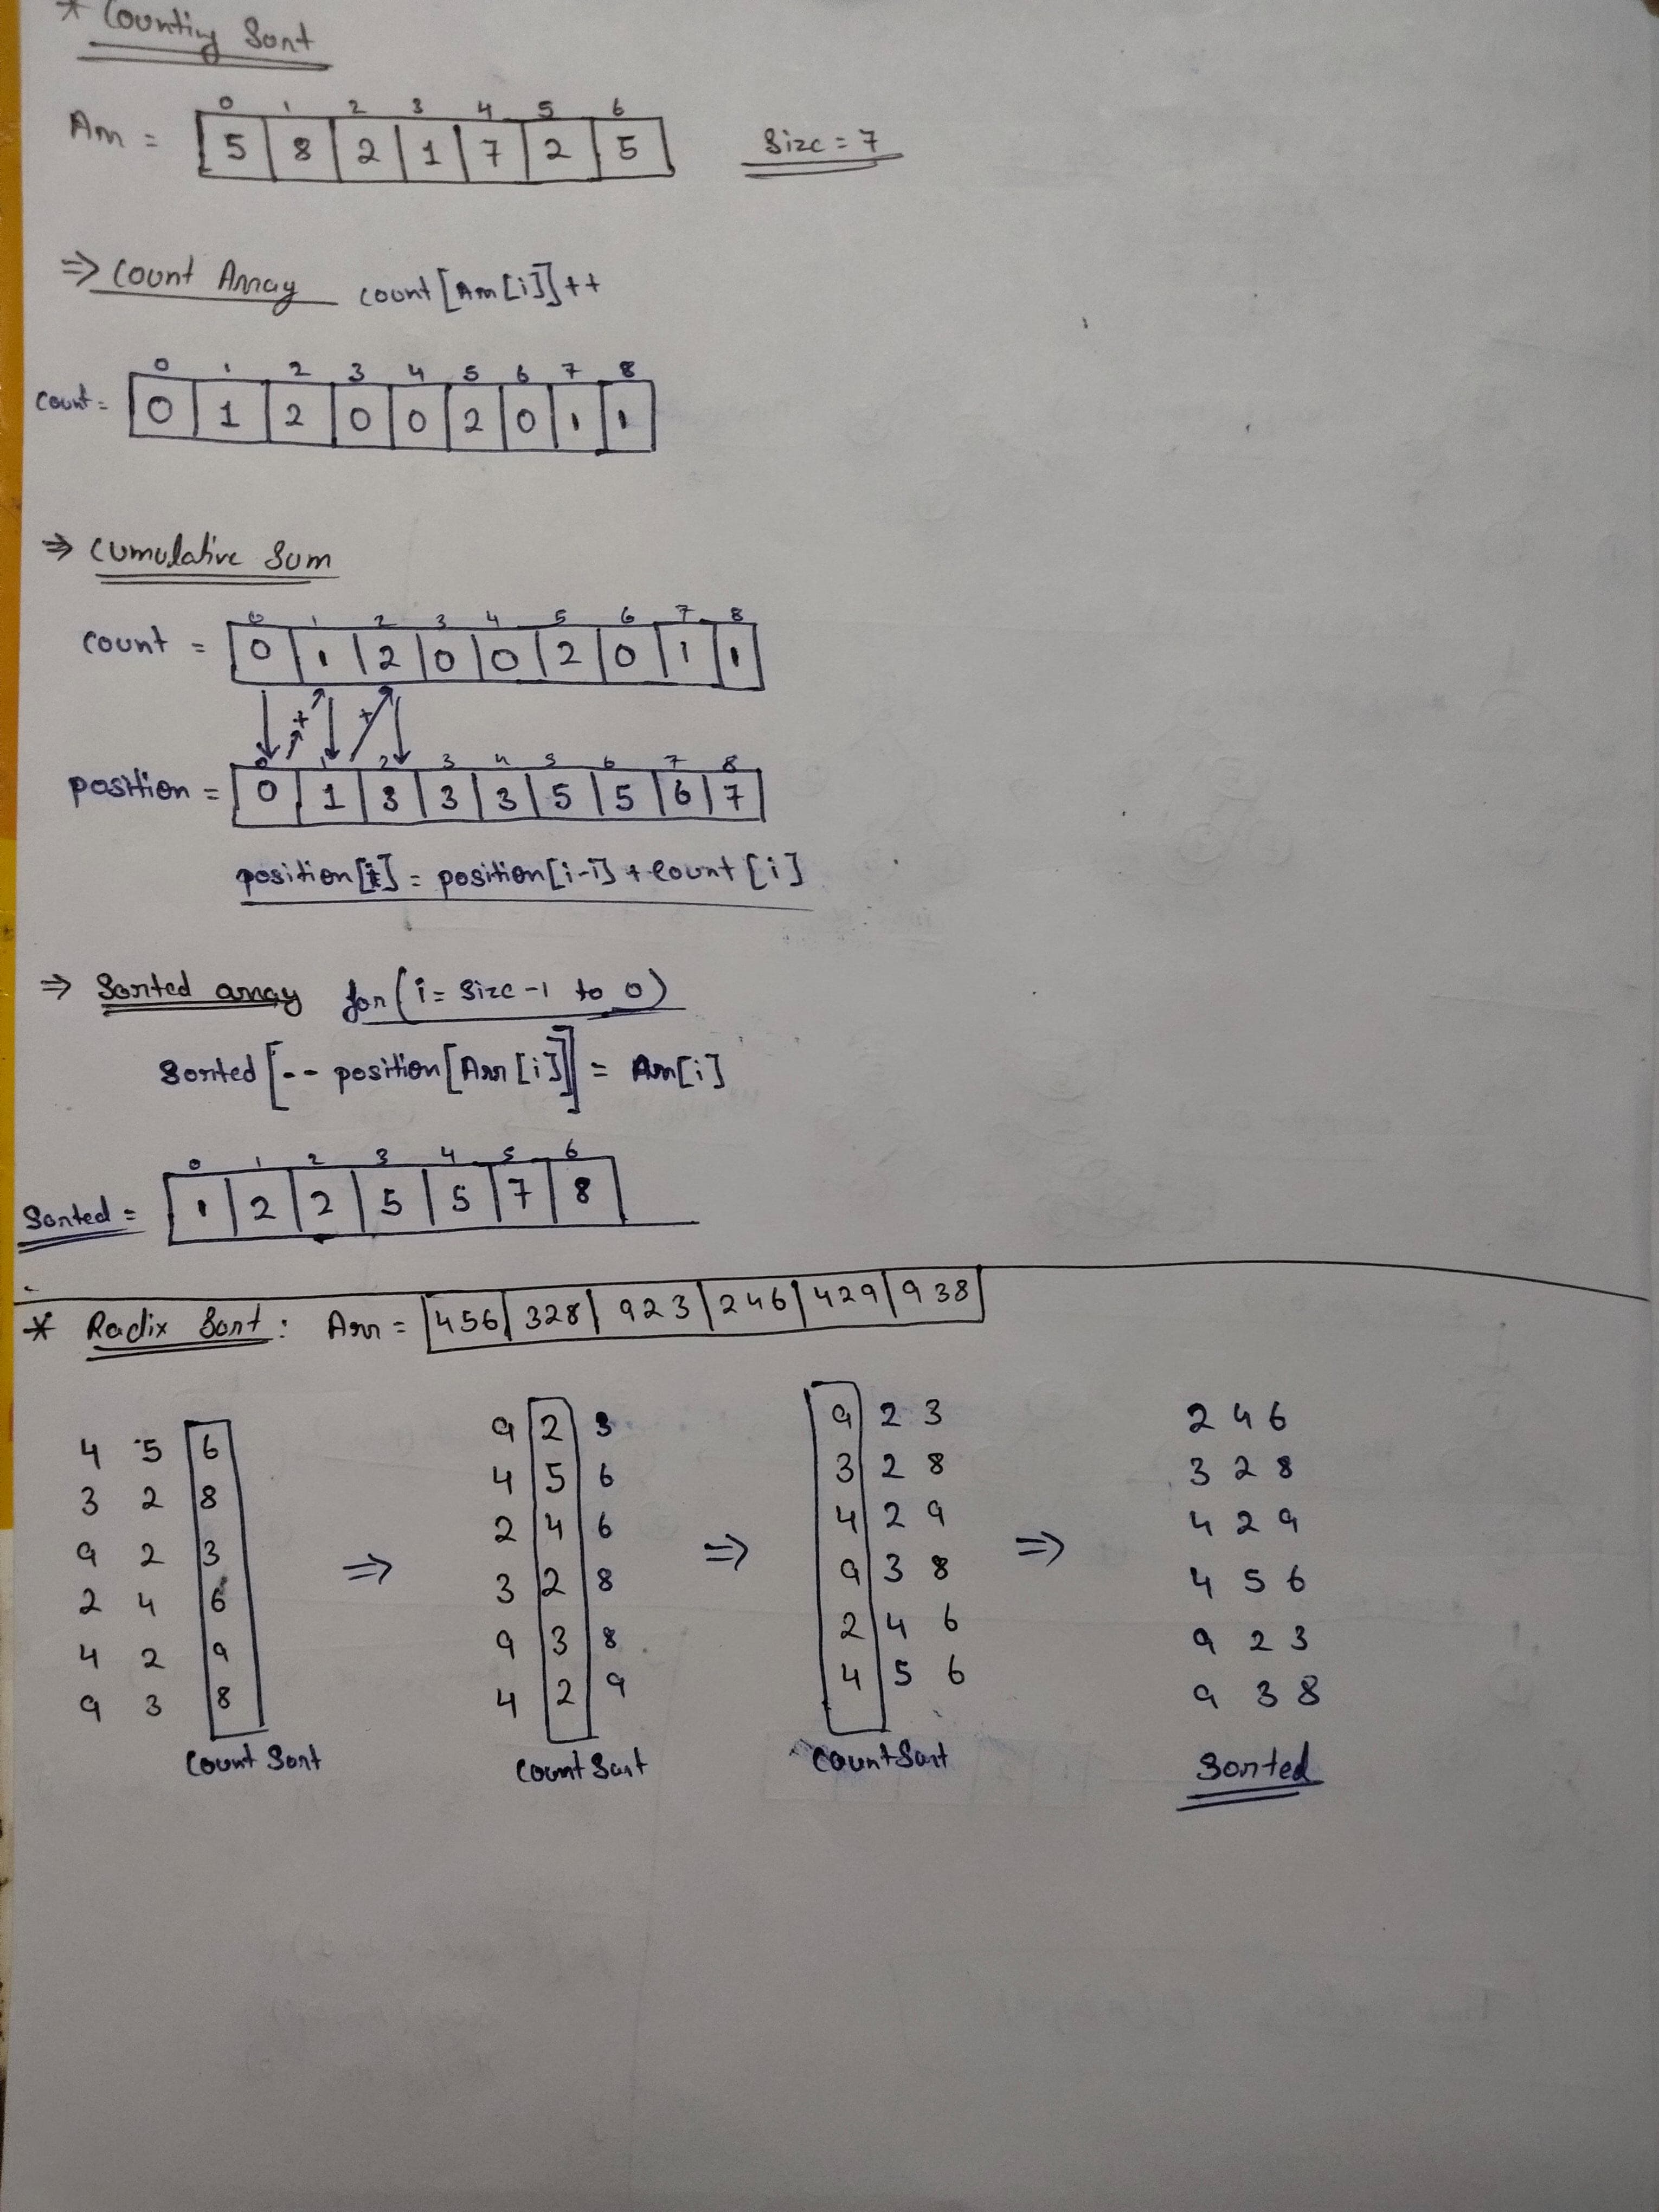 * Counting Sort
0 1 2 3 4 5 6
Arr = 5 8 2 1 7 2 5 Size = 7
⇒ Count Array count[Arr[i]]++
0 1 2 3 4 5 6 7 8
count = 0 1 2 0 0 2 0 1 1
⇒ Cumulative Sum
0 1 2 3 4 5 6 7 8
count = 0 1 2 0 0 2 0 1 1
+ +
0 1 2 3 4 5 6 7 8
position = 0 1 3 3 3 5 5 6 7
position[i] = position[i-1] + count[i]
⇒ Sorted array for(i = Size -1 to 0)
Sorted[-- position[Arr[i]]] = Arr[i]
0 1 2 3 4 5 6
Sorted = 1 2 2 5 5 7 8
* Radix Sort: Arr = 456 328 923 246 429 938
4 5 6
3 2 8
9 2 3
2 4 6
4 2 9
9 3 8
Count Sort
⇒
9 2 3
4 5 6
2 4 6
3 2 8
9 3 8
4 2 9
Count Sort
⇒
9 2 3
3 2 8
4 2 9
9 3 8
2 4 6
4 5 6
Count Sort
⇒
2 4 6
3 2 8
4 2 9
4 5 6
9 2 3
9 3 8
Sorted